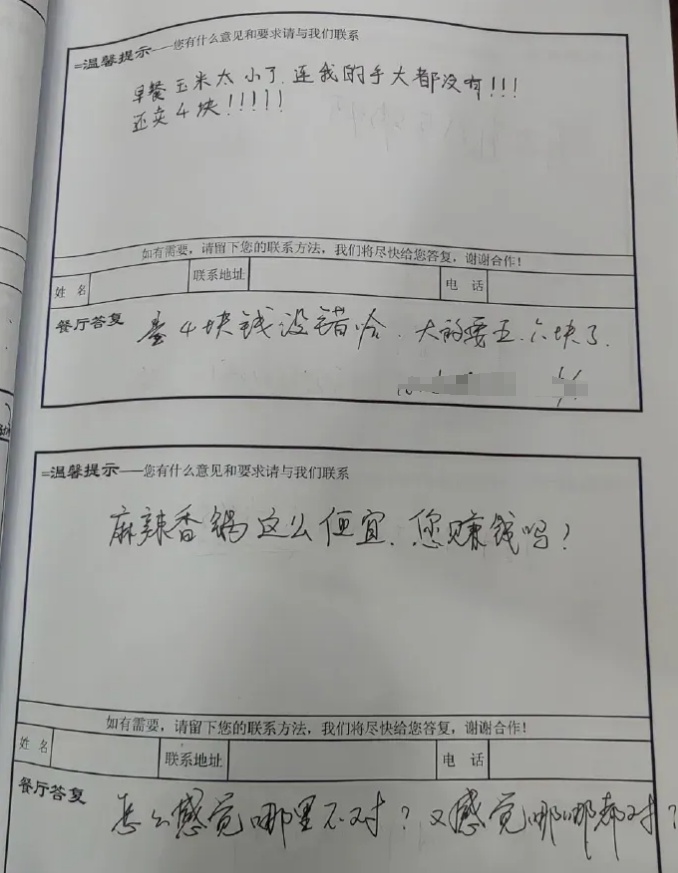 =温馨提示——您有什么意见和要求请与我们联系
早餐玉米太小了.连我的手大都没有!!!
还卖4块!!!!!
如有需要,请留下您的联系方法,我们将尽快给您答复,谢谢合作!
姓 名 联系地址 电 话
餐厅答复 4块钱没错哈.大的要五.六块了.
=温馨提示——您有什么意见和要求请与我们联系
麻辣香锅这么便宜.您赚钱吗?
如有需要,请留下您的联系方法,我们将尽快给您答复,谢谢合作!
姓 名 联系地址 电 话
餐厅答复 怎么感觉哪里不对?又感觉哪哪都对?